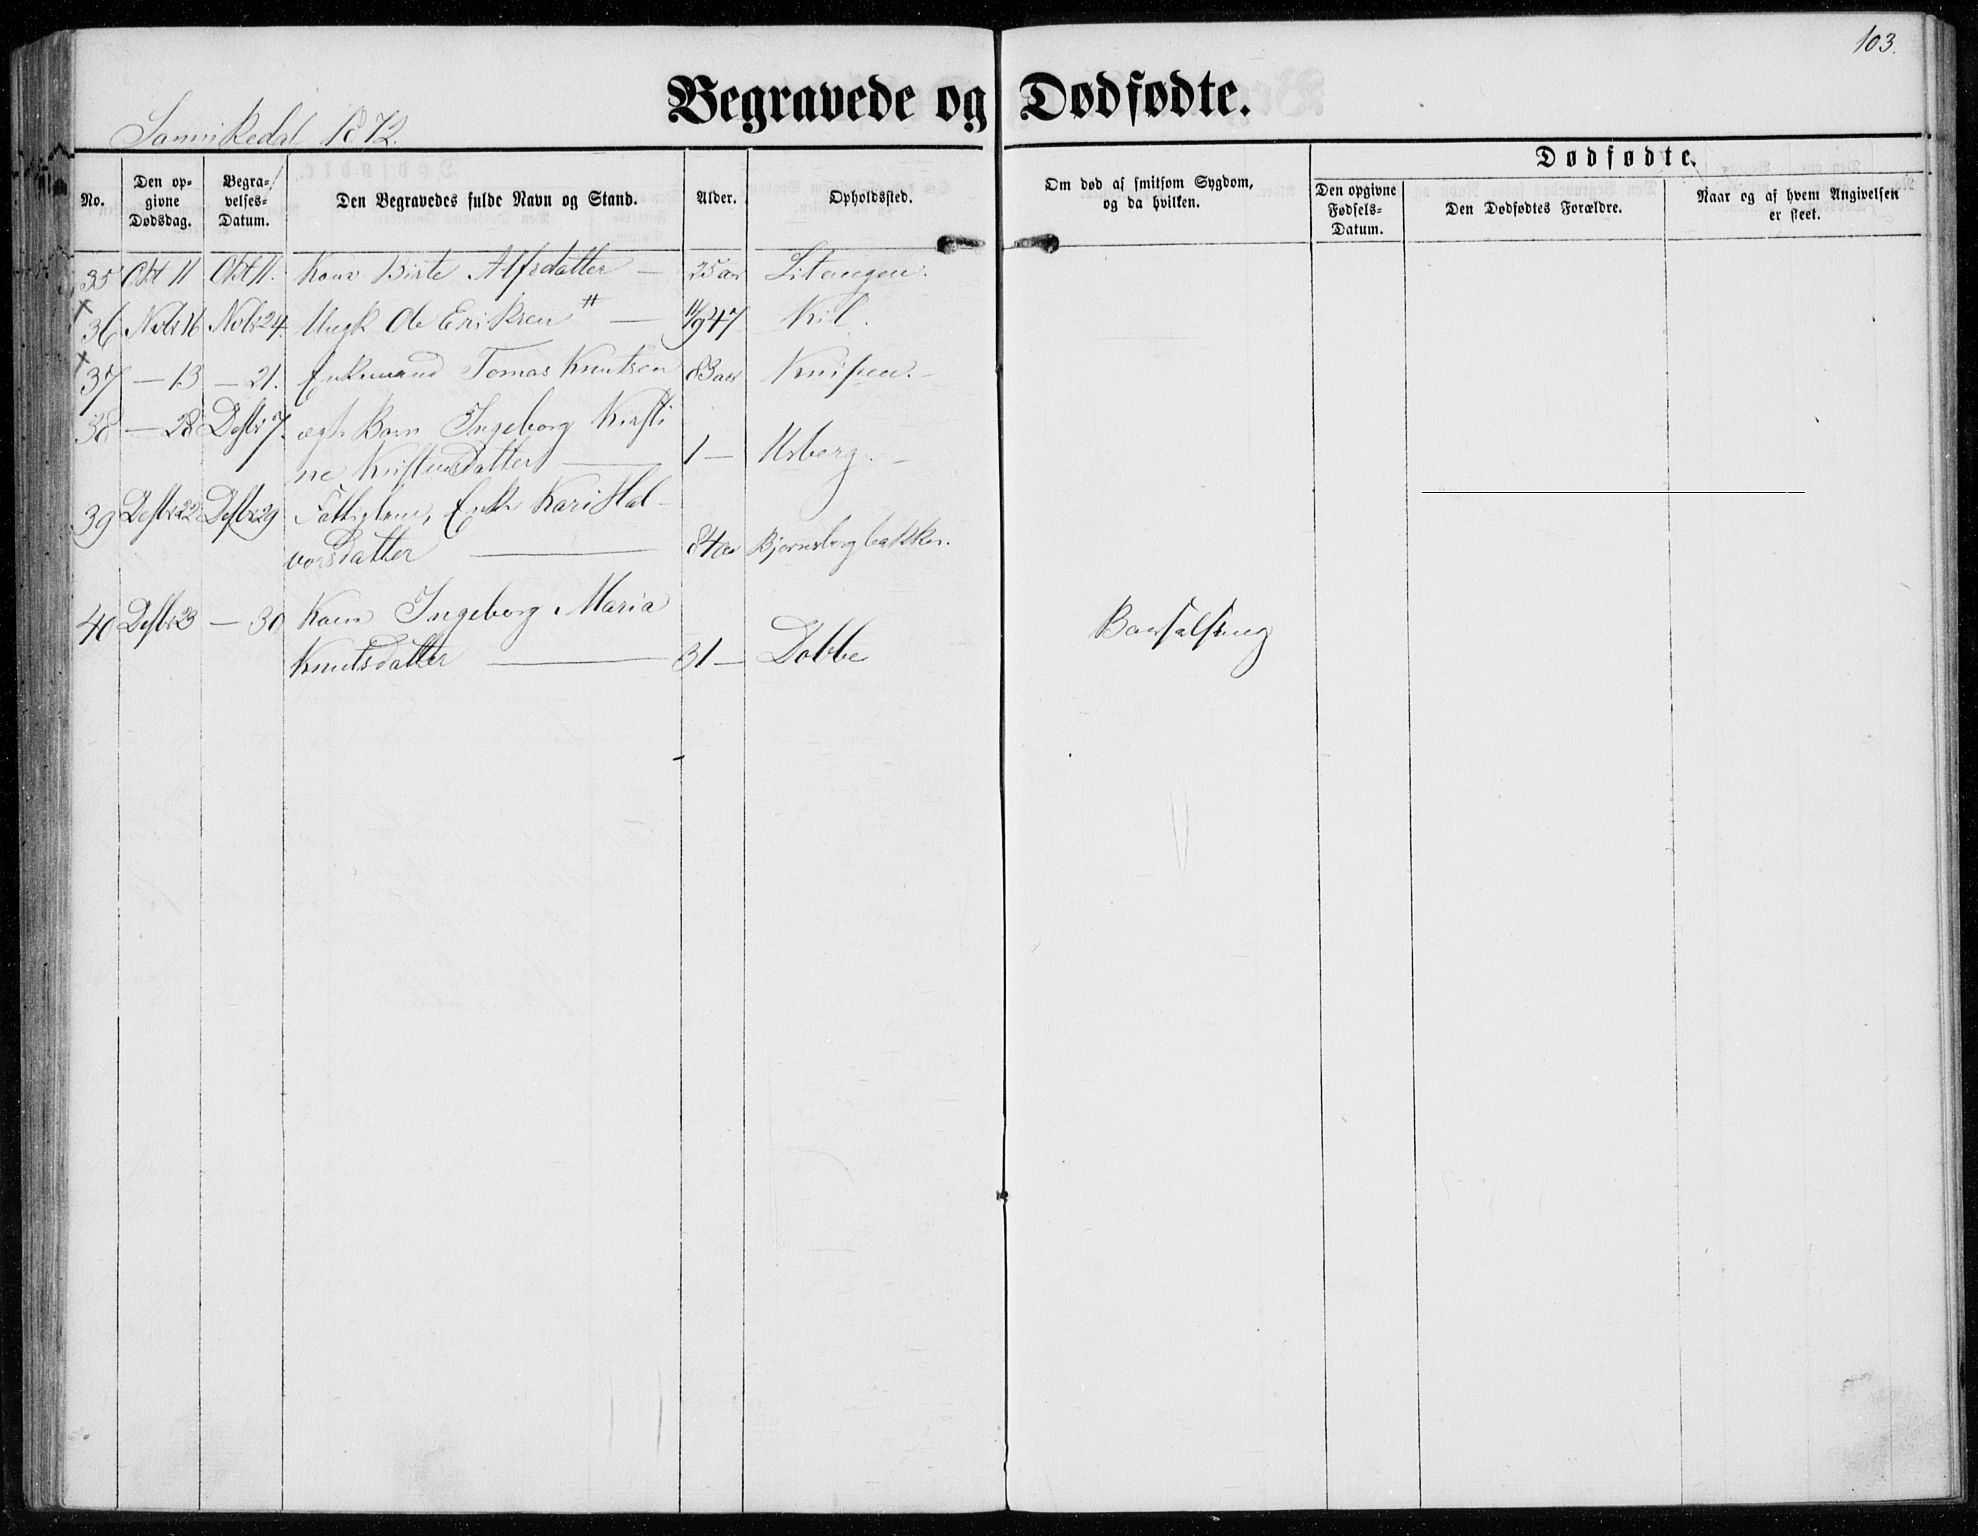 103.
Begravede og Dødfødte.
Sannikedal 1872.
Dødfødte.
No.
Den op-
givne
Dødsdag.
Begra-
velses-
Datum.
Den Begravedes fulde Navn og Stand.
Alder.
Opholdssted.
Om død af smitsom Sygdom,
og da hvilken.
Den opgivne
Fødsels-
Datum.
Den Dødfødtes Forældre.
Naar og af hvem Angivelsen
er skeet.
35 Okt 11 Okt 11. Kone Birte Alfsdatter — 25 aar
x
36 Nvbr 16 Nvbr 24. Ungk Ole Eriksen # — 11/9 47 Kil.
x
37 — 13 — 21. Enkemand Tomas Knutsen 83 aar Knipen.
38 — 28 Desbr 7. ægte Barn Ingeborg Kirsti
ne Kristensdatter — 1 — Usberg.
39 Desbr 22 Desbr 29 Fattiglem, Enke Kari Hal-
vorsdatter — 84 aar Bjørnsborgbakken.
40 Desbr 23 — 30 Kone Ingeborg Maria
Knutsdatter — 31 — Dobbe Barselseng